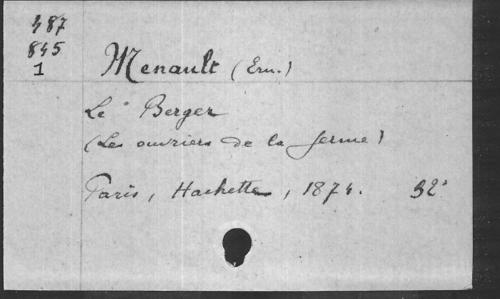 487
845
1
Menault (Ern.)
Le Berger
(Les ouvriers de la ferme)
Paris, Hachette, 1874. 32°